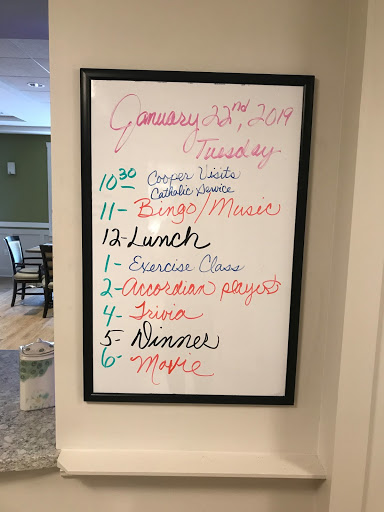 January 22nd, 2019
Tuesday
10 30 Cooper Visits
Catholic Service
11- Bingo/Music
12-Lunch
1- Exercise Class
2-Accordian players
4- Trivia
5- Dinner
6- Movie